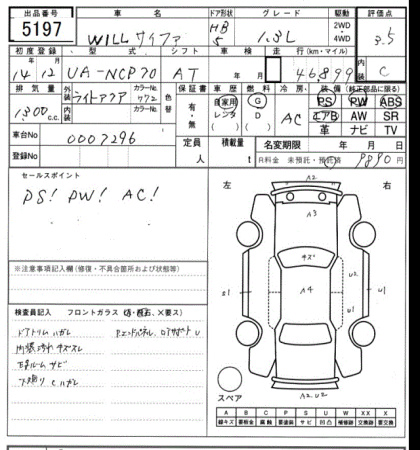 出品番号 車名 ドア形状 グレード 駆動 評価点
5197 WILL サイファ HB 5 1.3L 2WD 4WD 3.5
初度登録 型式 シフト 車検 走行(km・マイル) 内装
14 12 UA-NCP70 AT 年 月 46,899 C
排気量 外装 カラーNo. 色替 保証書 車歴 燃料 冷房 装備(純正部品に限る)
1300 c.c. ライトアクア 772 有・無 自家用 レンタ G D AC PS PW ABS
内装 カラーNo. エアB AW SR
革 ナビ TV
車台No 0007296 定員 人 積載量 t 名変期限 年 月 日
R料金 未預託・預託済 9890円
セールスポイント
PS! PW! AC!
左 右
A2
A3
キズ
A4
U2
S1
U1
U1
※注意事項記入欄(修復・不具合箇所および状態)
検査員記入 フロントガラス
ドアトリムハガレ
内張汚れ キズ スレ
サビ
下廻り ハガレ
スペア
A2 U2
A B C P S U W XX X
線キズ 要板金 腐蝕 要塗装 サビ 凹 補修跡 交換跡 要交換